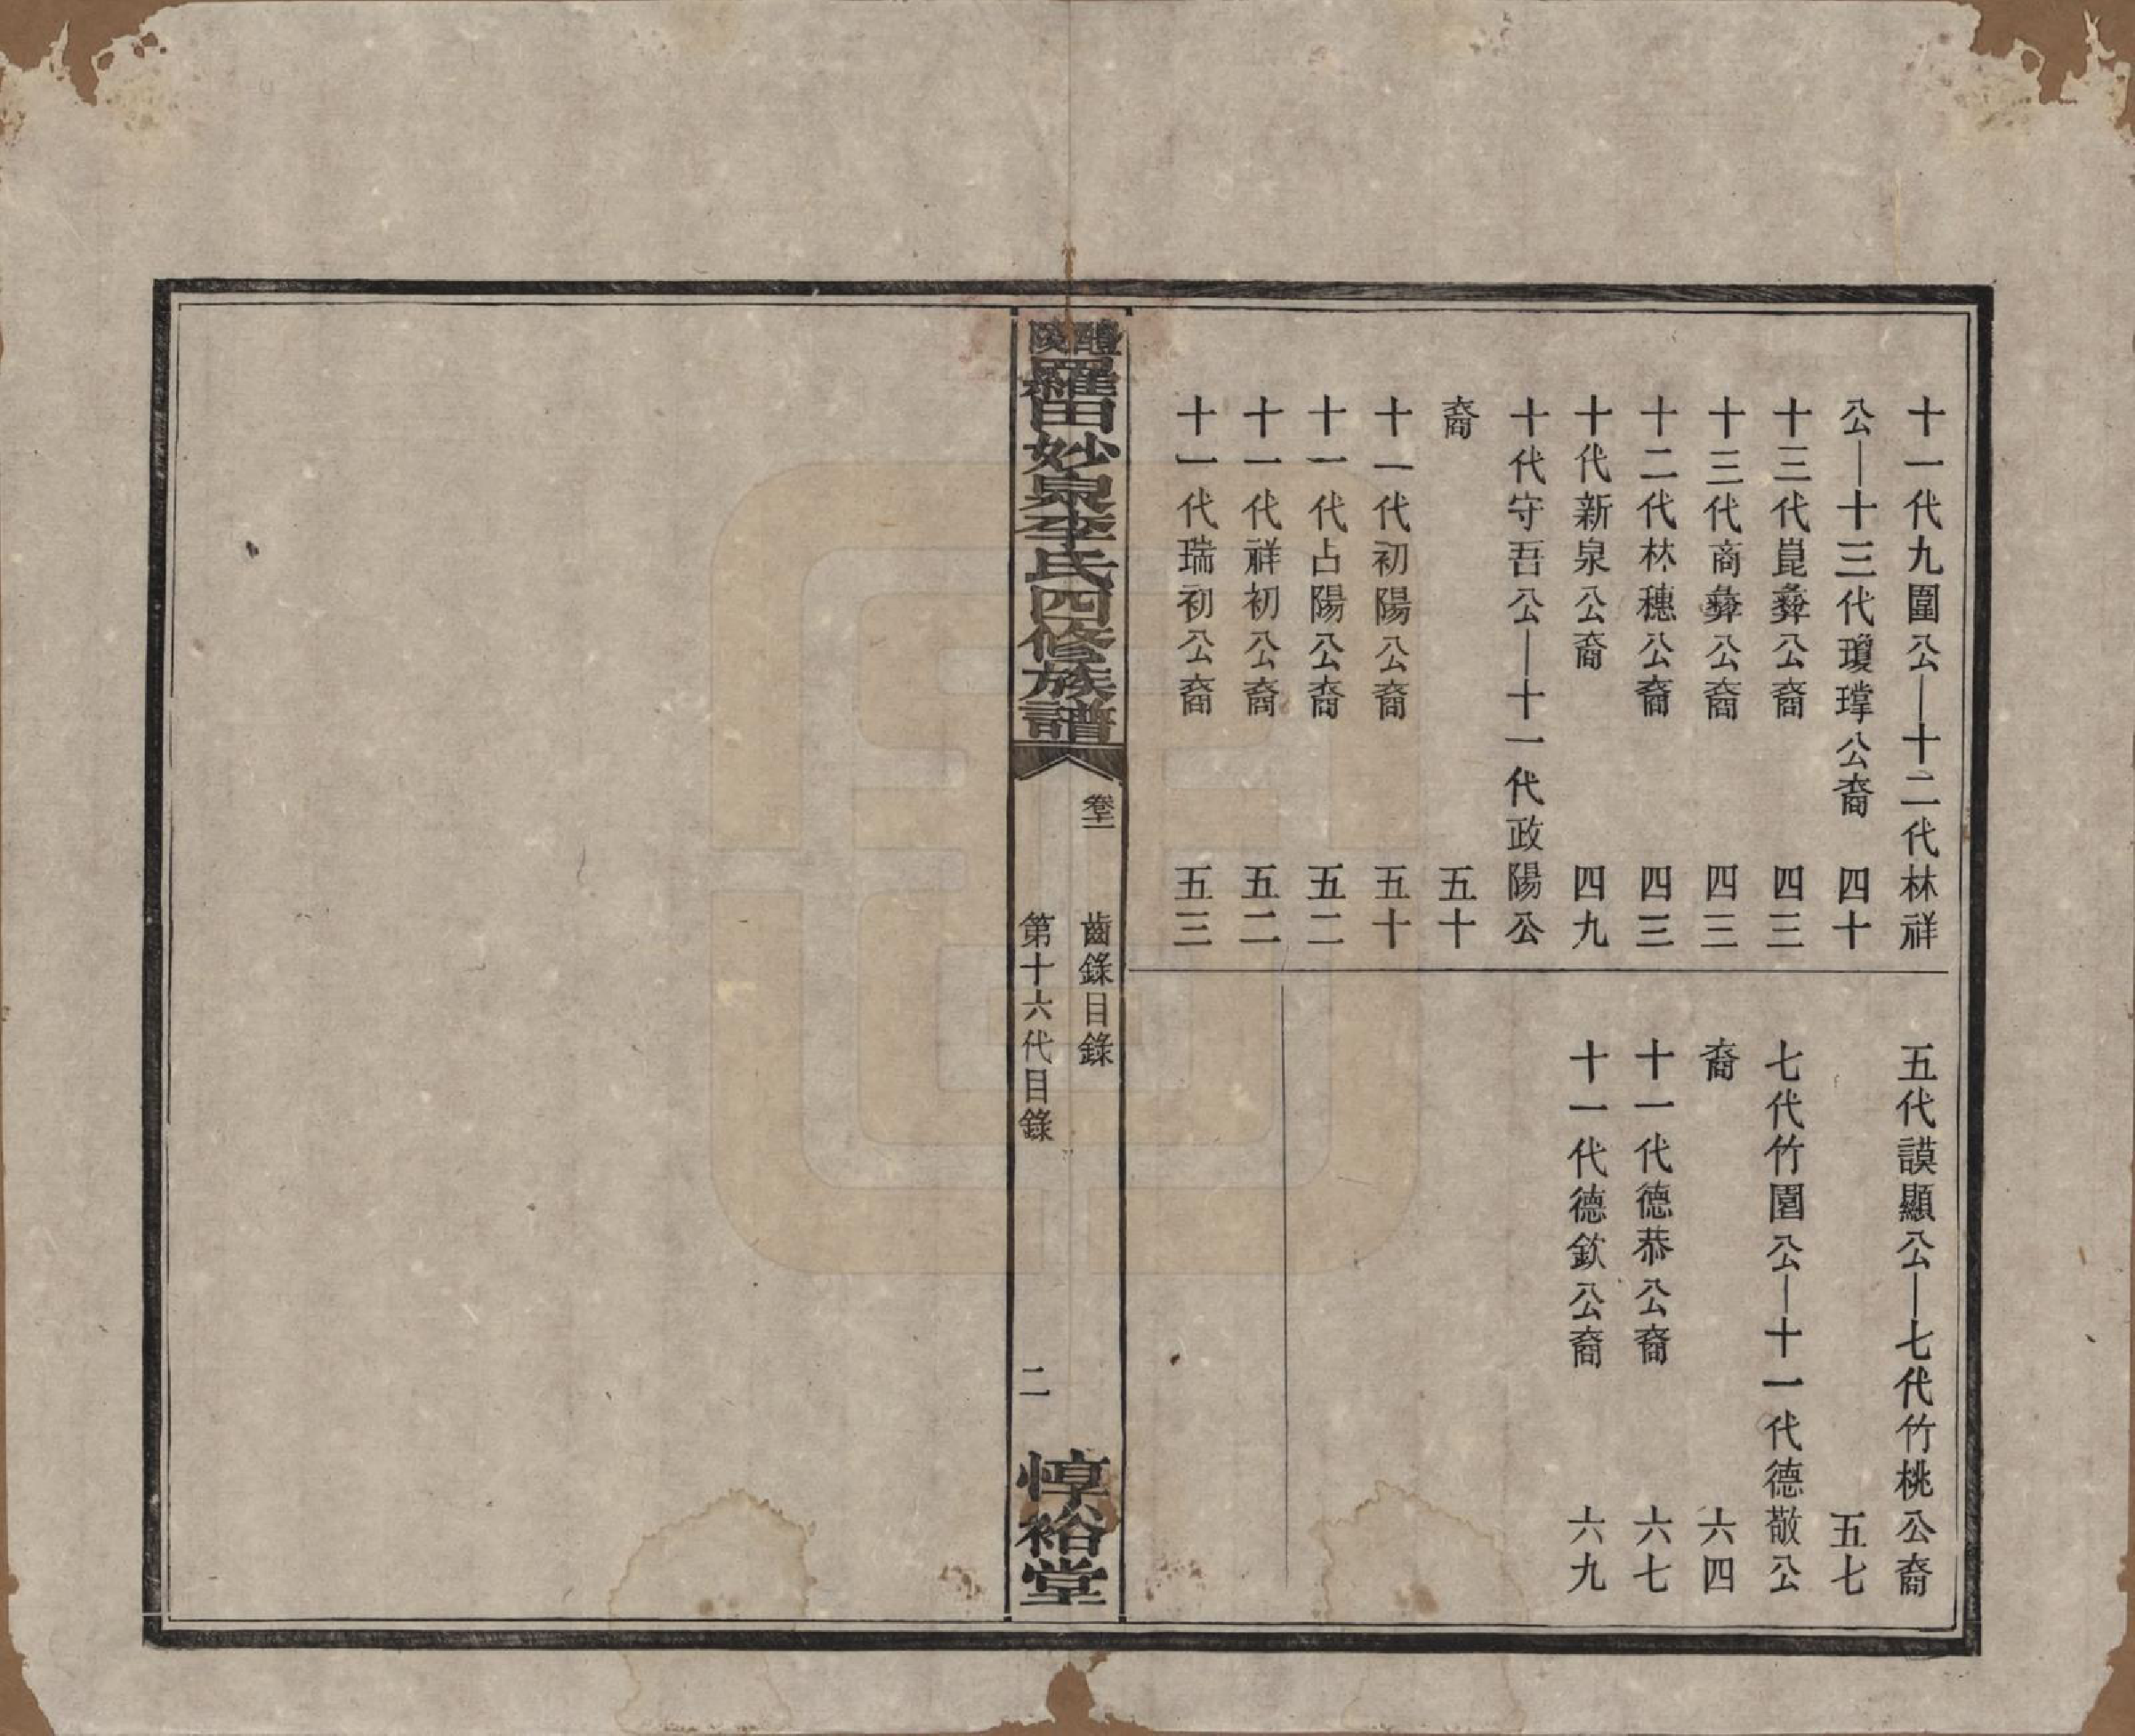 十一代九圍公—十二代林祥
公—十三代瓊璋公裔 四十
十三代崑彝公裔 四三
十三代商彝公裔 四三
十二代林穗公裔 四三
十代新泉公裔 四九
十代守吾公—十一代政陽公
裔 五十
十一代初陽公裔 五十
十一代占陽公裔 五二
十一代祥初公裔 五二
十一代瑞初公裔 五三
五代謨顯公—七代竹桃公裔
五七
七代竹園公—十一代德敬公
裔 六四
十一代德恭公裔 六七
十一代德欽公裔 六九
醴陵羅田妙泉李氏四修族譜
齒錄目錄
第十六代目錄
二
惇裕堂